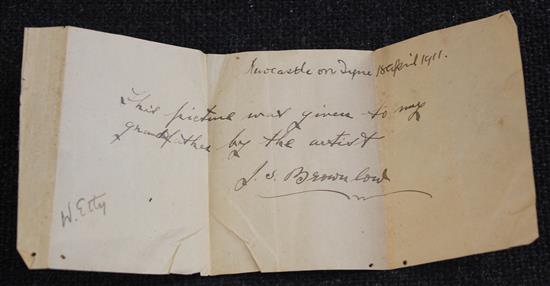 Newcastle on Tyne 18 April 1911.
This picture was given to my
grandfather by the artist
J. S. Brownlow
W. Etty